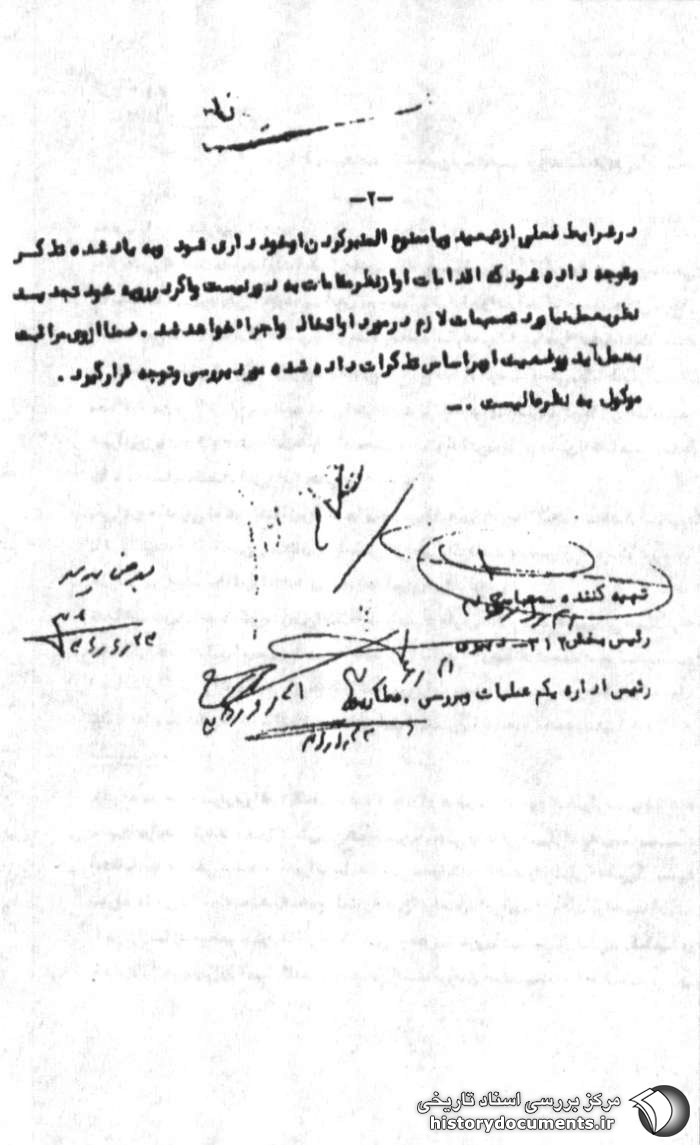 -۲-
در شرایط فعلی از تبعید و یا ممنوع المنبر کردن او خودداری شود و به یاد شده تذکر
و توجه داده شود که اقدامات او از نظر مقامات به دور نیست و اگر در رویه خود تجدید
نظر بعمل نیاورد تصمیمات لازم در مورد او اتخاذ و اجراء خواهد شد. ضمنا از وی مراقبت
بعمل آید و وضعیت او بر اساس تذکرات داده شده مورد بررسی و توجه قرار گیرد.
موکول به نظر عالیست. —
تهیه کننده
رئیس بخش ۳۱۲
رئیس اداره یکم عملیات و بررسی. عطارپور
مرکز بررسی اسناد تاریخی
historydocuments.ir